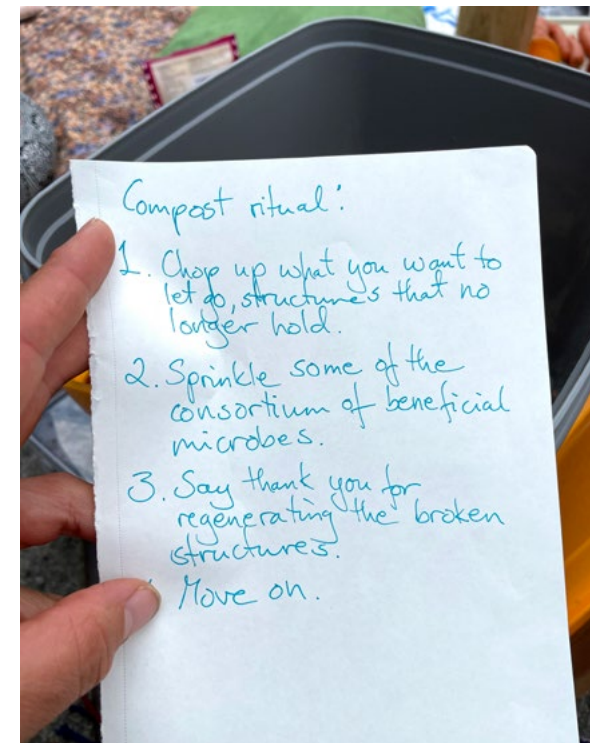 Compost ritual:
1. Chop up what you want to
let go, structures that no
longer hold.
2. Sprinkle some of the
consortium of beneficial
microbes.
3. Say thank you for
regenerating the broken
structures.
Move on.